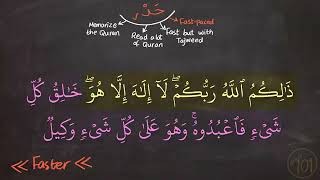 حَدْر
Memorize the Quran
Read a lot of Quran
Fast but with Tajweed
Fast-paced
ذَٰلِكُمُ ٱللَّهُ رَبُّكُمْ ۖ لَآ إِلَـٰهَ إِلَّا هُوَ ۖ خَـٰلِقُ كُلِّ
شَىْءٍ فَٱعْبُدُوهُ ۚ وَهُوَ عَلَىٰ كُلِّ شَىْءٍ وَكِيلٌ
<< Faster <<